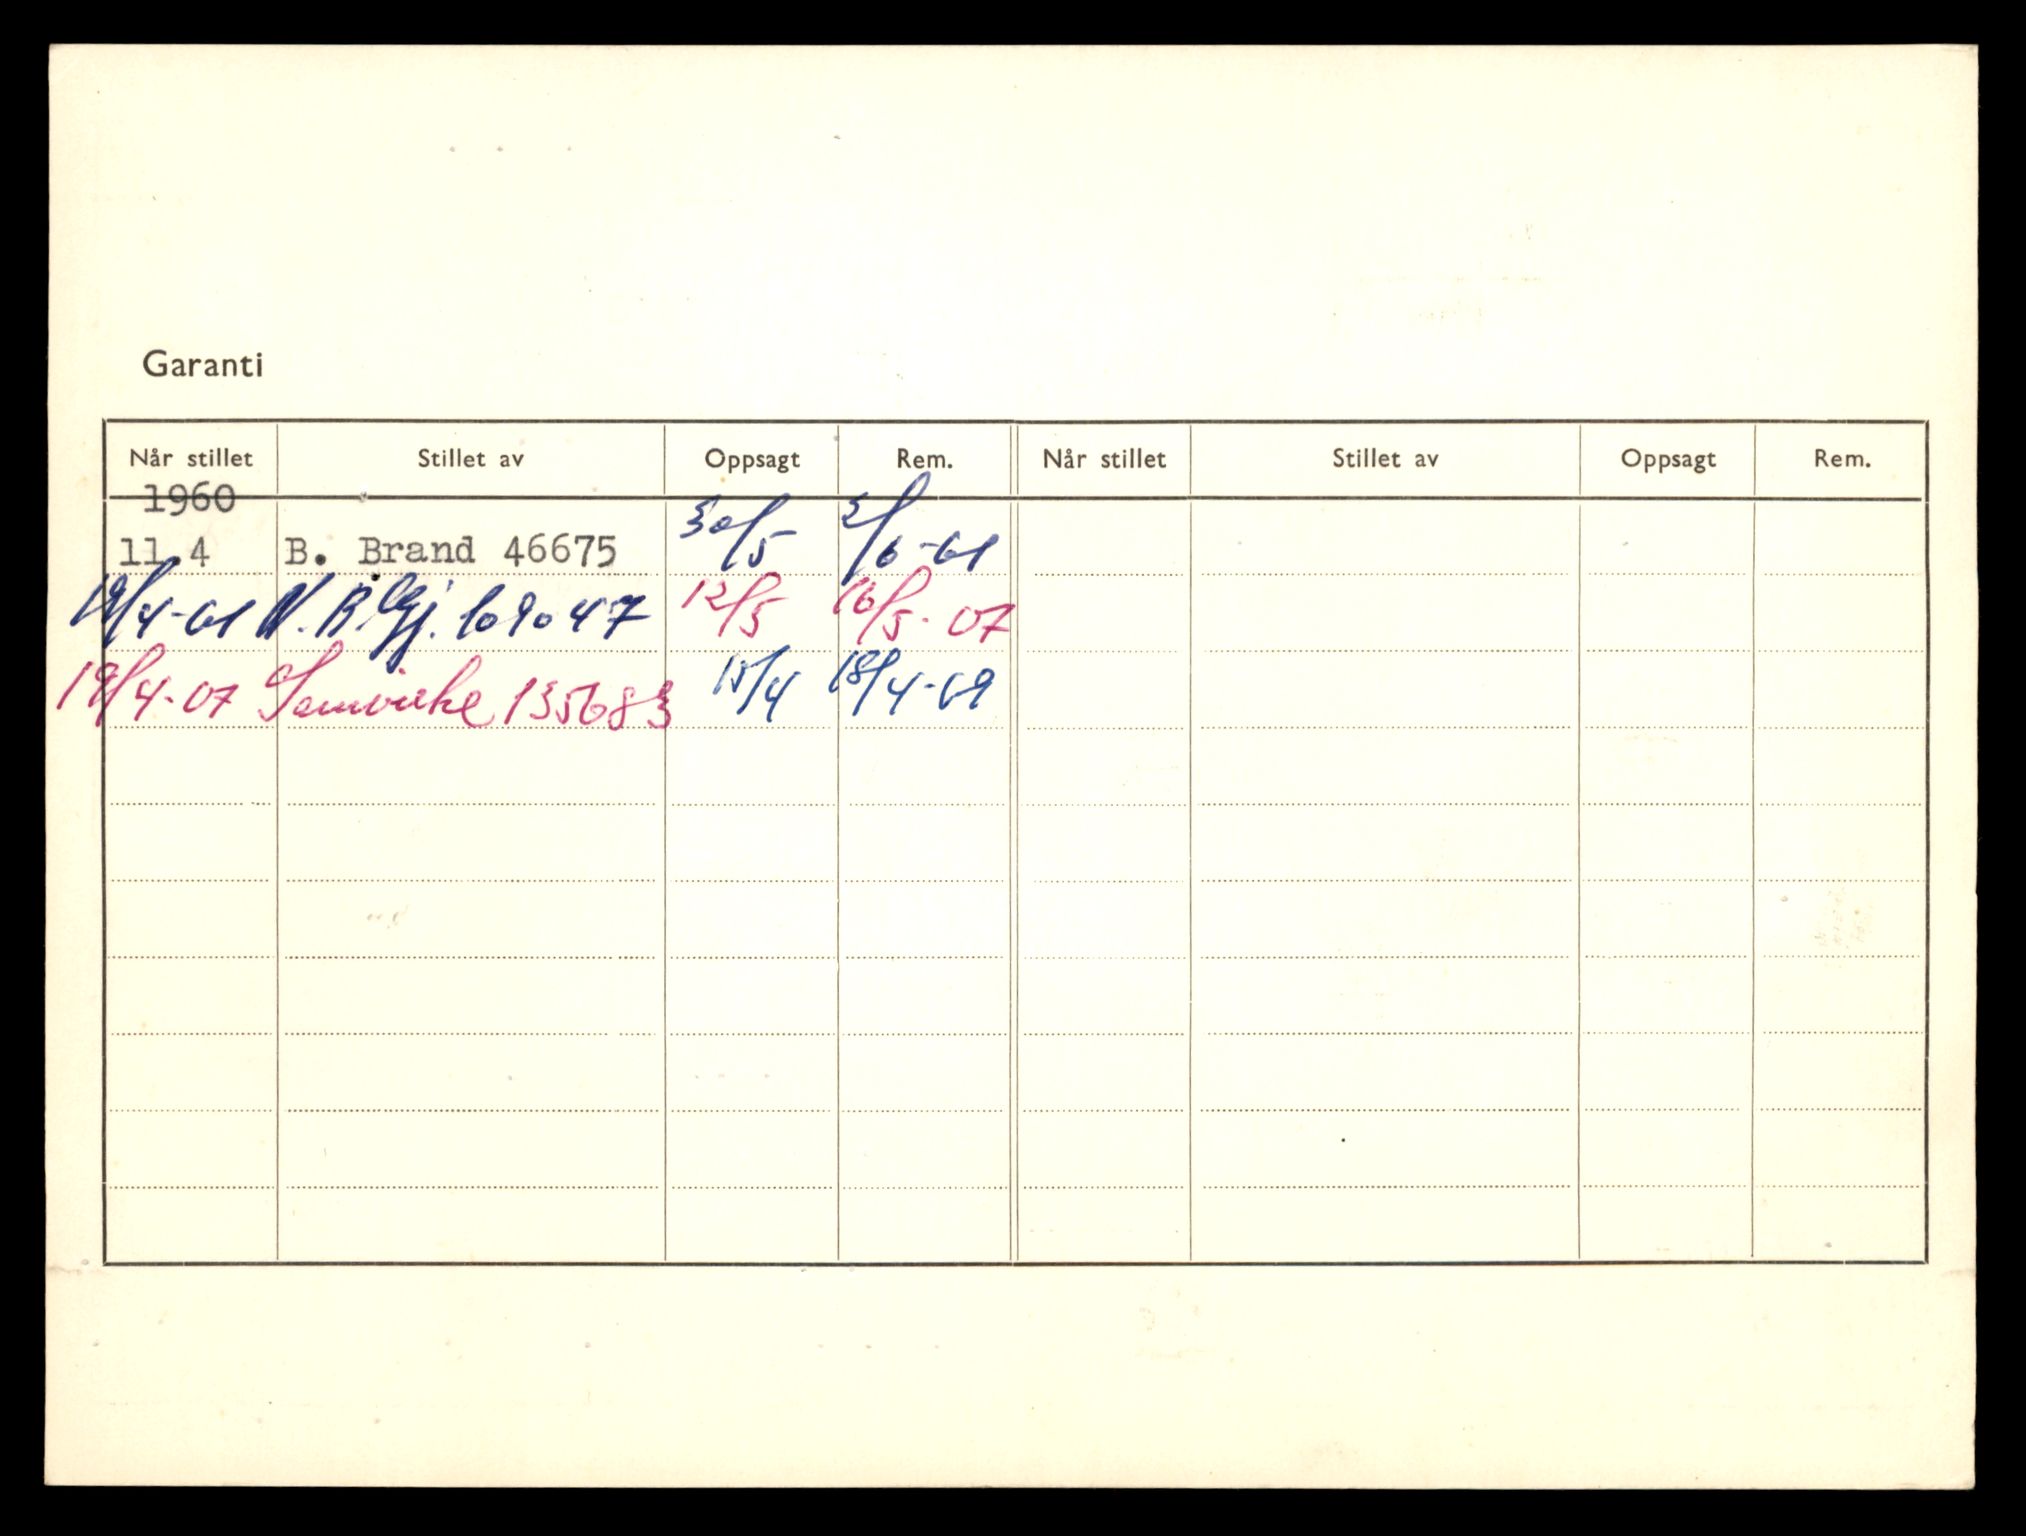 Garanti
Når stillet Stillet av Oppsagt Rem. Når stillet Stillet av Oppsagt Rem.
1960
11.4 B. Brand 46675 30/5 2/6-61
19/4-61 N. B. Gj. 609047 12/5 16/5-67
19/4-67 Samvirke 135683 15/4 18/4-69